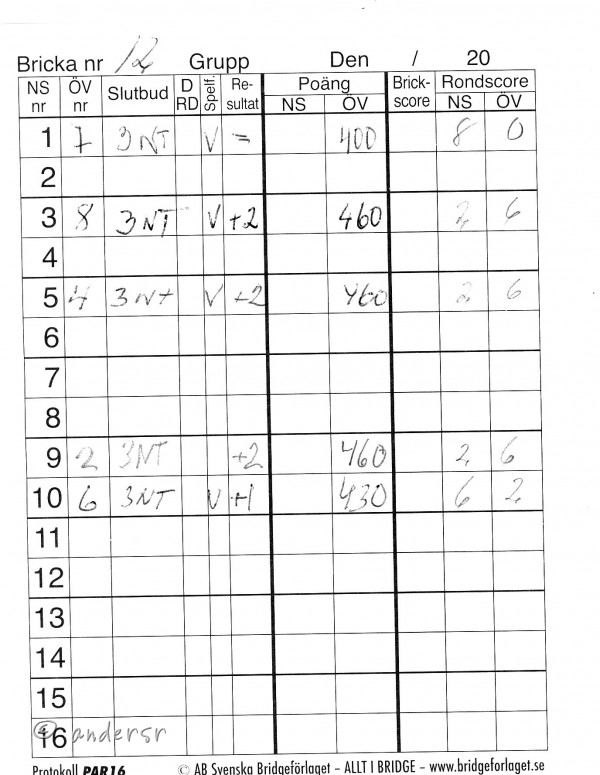 Bricka nr 12 Grupp Den / 20
NS nr ÖV nr Slutbud D RD Spelf. Re-sultat Poäng NS ÖV Brick-score Rondscore NS ÖV
1 7 3 NT V = 400 8 0
2
3 8 3 NT V +2 460 2 6
4
5 4 3 NT V +2 460 2 6
6
7
8
9 2 3NT +2 460 2 6
10 6 3NT V +1 430 6 2
11
12
13
14
15
16 andersr
Protokoll PAR16 © AB Svenska Bridgeförlaget – ALLT I BRIDGE – www.bridgeforlaget.se